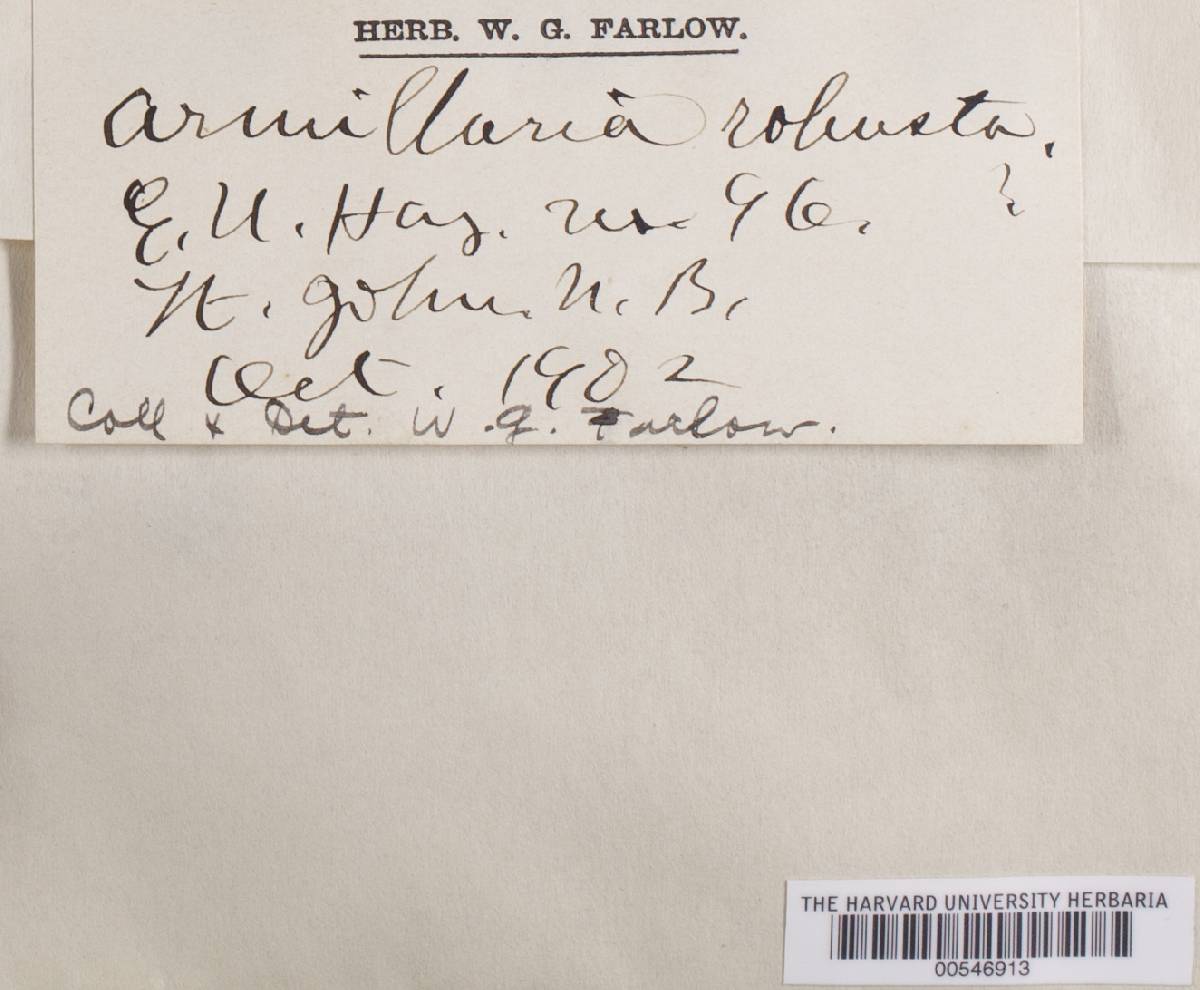 HERB. W. G. FARLOW.
Armillaria robusta.
?
G. U. Hay. no 96.
St. John. N. B.
Oct. 1902
Coll & Det. W. G. Farlow.
THE HARVARD UNIVERSITY HERBARIA
00546913